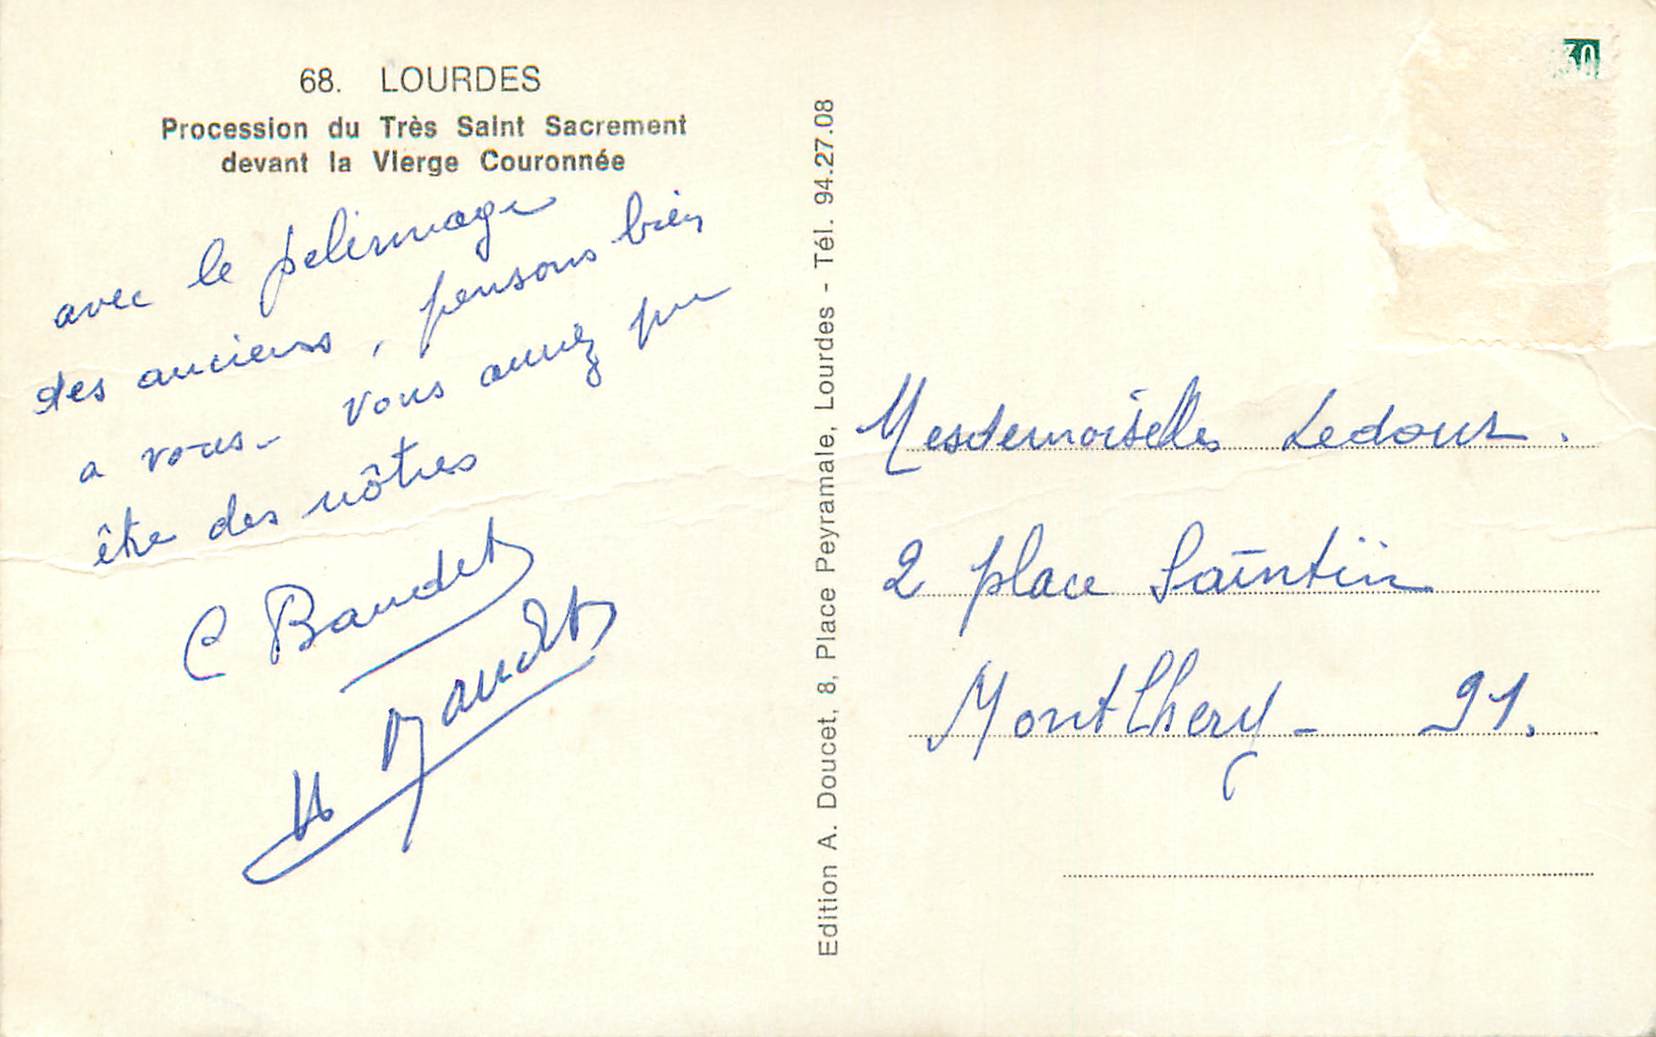 68. LOURDES
Procession du Très Saint Sacrement
devant la Vierge Couronnée
avec le pelerinage
des anciens, pensons bien
a vous - vous auriez pu
être des nôtres
C Baudet
Baudet
Edition A. Doucet, 8, Place Peyramale, Lourdes - Tél. 94.27.08
30
Mesdemoiselles Ledoux.
2 place
Montlhery - 91.